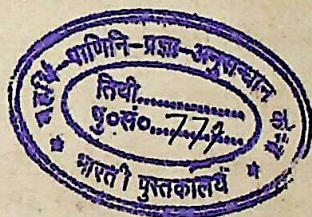 महर्षि-पाणिनि-प्रज्ञा-अनुसन्धान केन्द्र
तिथी..............
पु०सं०...777...
* भारती पुस्तकालय *